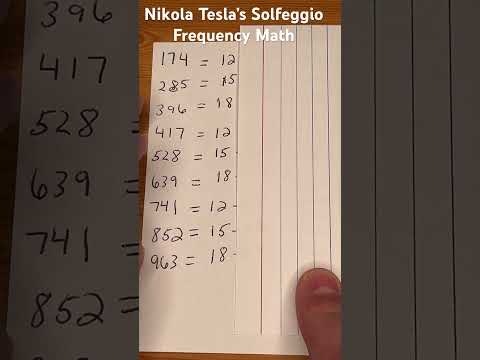 Nikola Tesla's Solfeggio
Frequency Math
396
417
528
639 =
741 =
852 =
174 = 12
285 = 15
396 = 18
417 = 12
528 = 15-
639 = 18-
741 = 12-
852 = 15-
963 = 18-